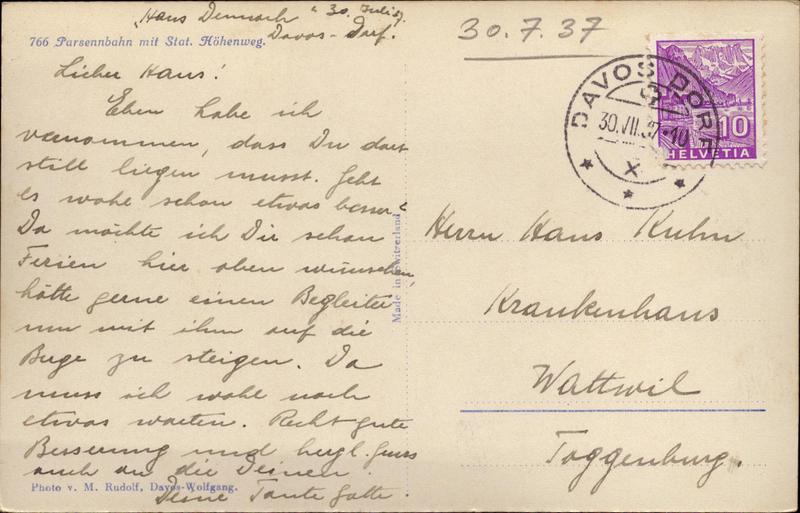 "Haus Dennoch" 30. Juli 37.
Davos-Dorf.
766 Parsennbahn mit Stat. Höhenweg.
Lieber Hans!
Eben habe ich
vernommen, dass Du dort
still liegen musst. Geht
es wohl schon etwas besser?
Da möchte ich Dir schon
Ferien hier oben wünschen,
hätte gerne einen Begleiter
um mit ihm auf die
Berge zu steigen. Da
muss ich wohl noch
etwas warten. Recht gute
Besserung und herzl. Gruss
auch an die Deinen.
Deine Tante
Photo v. M. Rudolf, Davos-Wolfgang.
Made in Switzerland
30.7.37
DAVOS DORF
30.VII.37-10
X
10
HELVETIA
Herrn Hans Kuhn
Krankenhaus
Wattwil
Toggenburg.